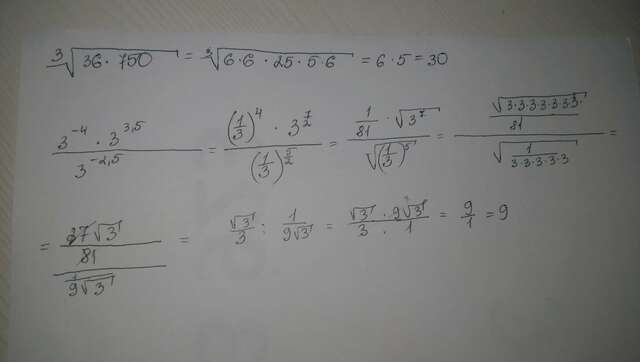 3√36·750 = 3√6·6·25·5·6 = 6·5=30
3^-4 · 3^3,5 / 3^-2,5 = (1/3)^4 · 3^7/2 / (1/3)^5/2 = 1/81 · √3^7 / √(1/3)^5 = √3·3·3·3·3·3·3 / 81 / √1/3·3·3·3·3 =
= 27√3 / 81 / 1/9√3 = √3/3 : 1/9√3 = √3 · 9√3 / 3 · 1 = 9/1 = 9